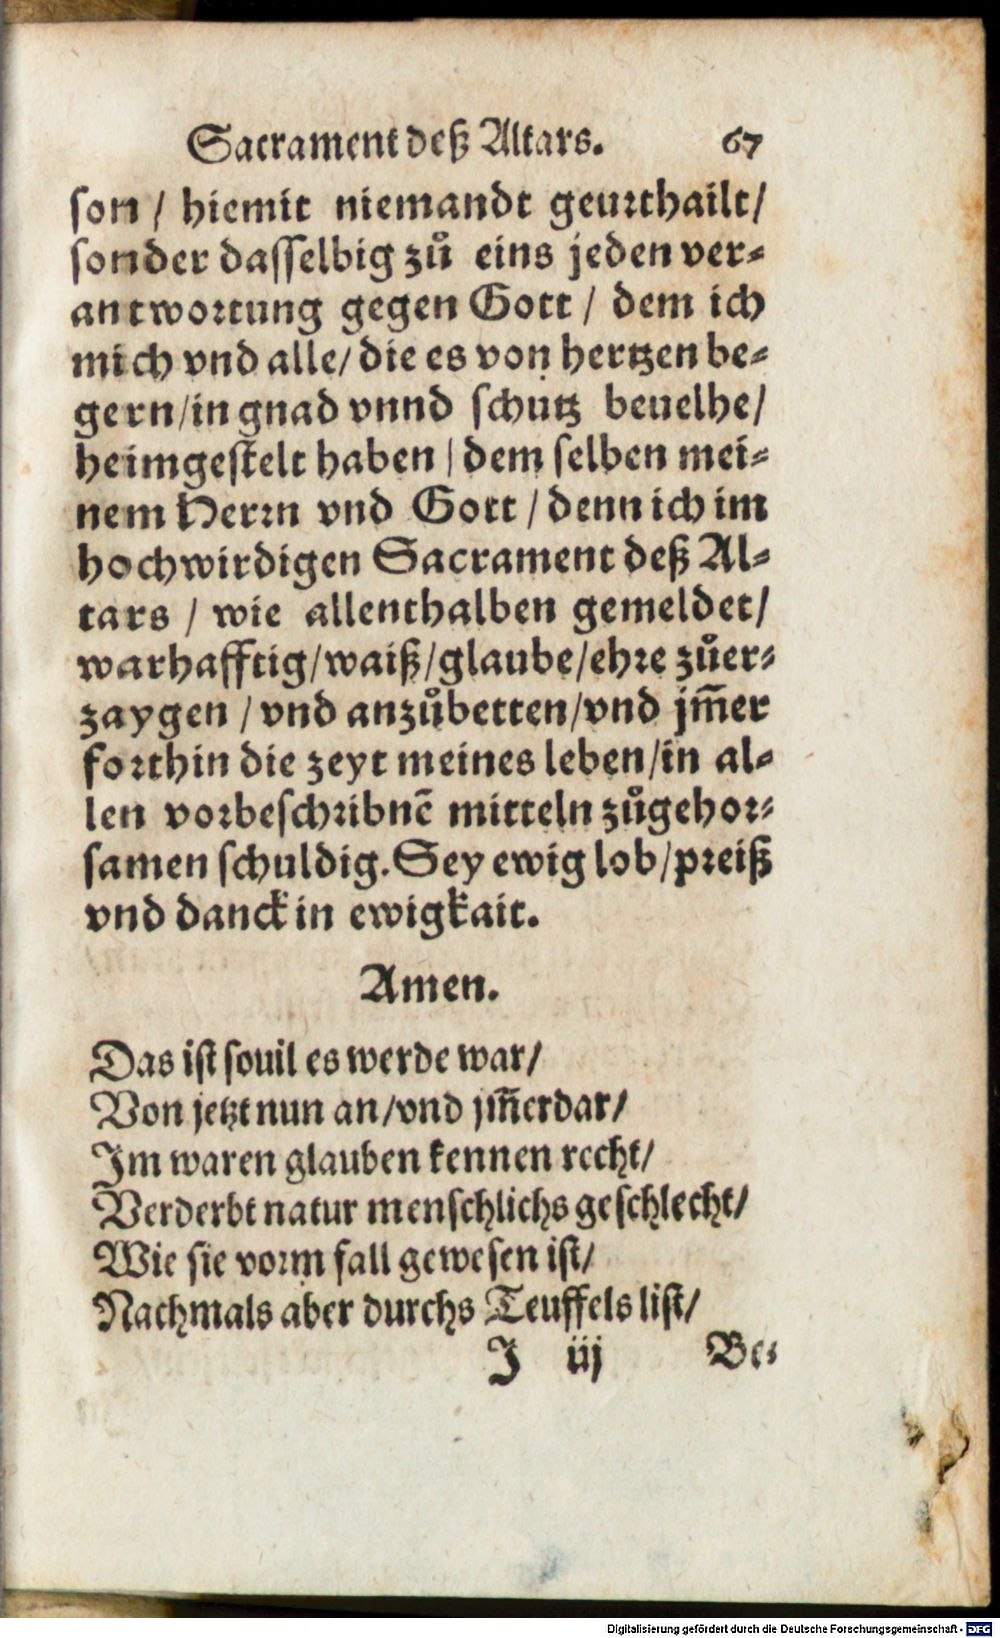 Sacrament deß Altars. 67
son / hiemit niemandt geurthailt/
sonder dasselbig zuͦ eins jeden ver⸗
antwortung gegen Gott / dem ich
mich vnd alle/ die es von hertzen be⸗
gern/in gnad vnnd schutz beuelhe/
heimgestelt haben / dem selben mei⸗
nem Herrn vnd Gott / denn ich im
hochwirdigen Sacrament deß Al⸗
tars / wie allenthalben gemeldet/
warhafftig/waiß/glaube/ehre zuͦer⸗
zaygen / vnd anzuͦbetten/vnd jm̃er
forthin die zeyt meines leben/in al⸗
len vorbeschribnẽ mitteln zuͦgehor⸗
samen schuldig. Sey ewig lob/preiß
vnd danck in ewigkait.
Amen.
Das ist souil es werde war/
Von jetzt nun an/vnd jm̃erdar/
Im waren glauben kennen recht/
Verderbt natur menschlichs geschlecht/
Wie sie vorm fall gewesen ist/
Nachmals aber durchs Teuffels list/
J iij Be⸗
Digitalisierung gefördert durch die Deutsche Forschungsgemeinschaft - DFG